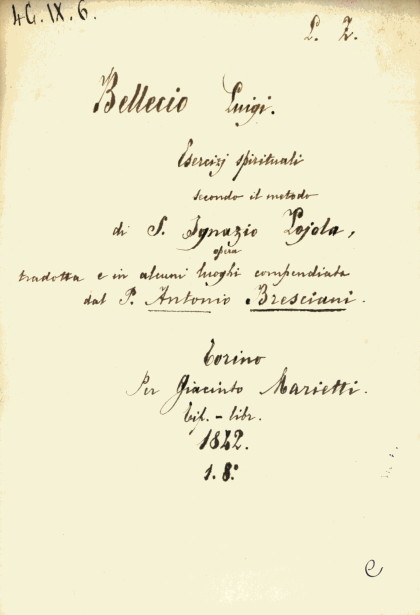 4G.IX.6.
L. Z.
Bellecio Luigi.
Esercizj spirituali
secondo il metodo
di S. Ignazio Lojola,
opera
tradotta e in alcuni luoghi compendiata
dal P. Antonio Bresciani.
Torino
Per Giacinto Marietti.
Tip. - libr.
1842.
1. 8.°
e